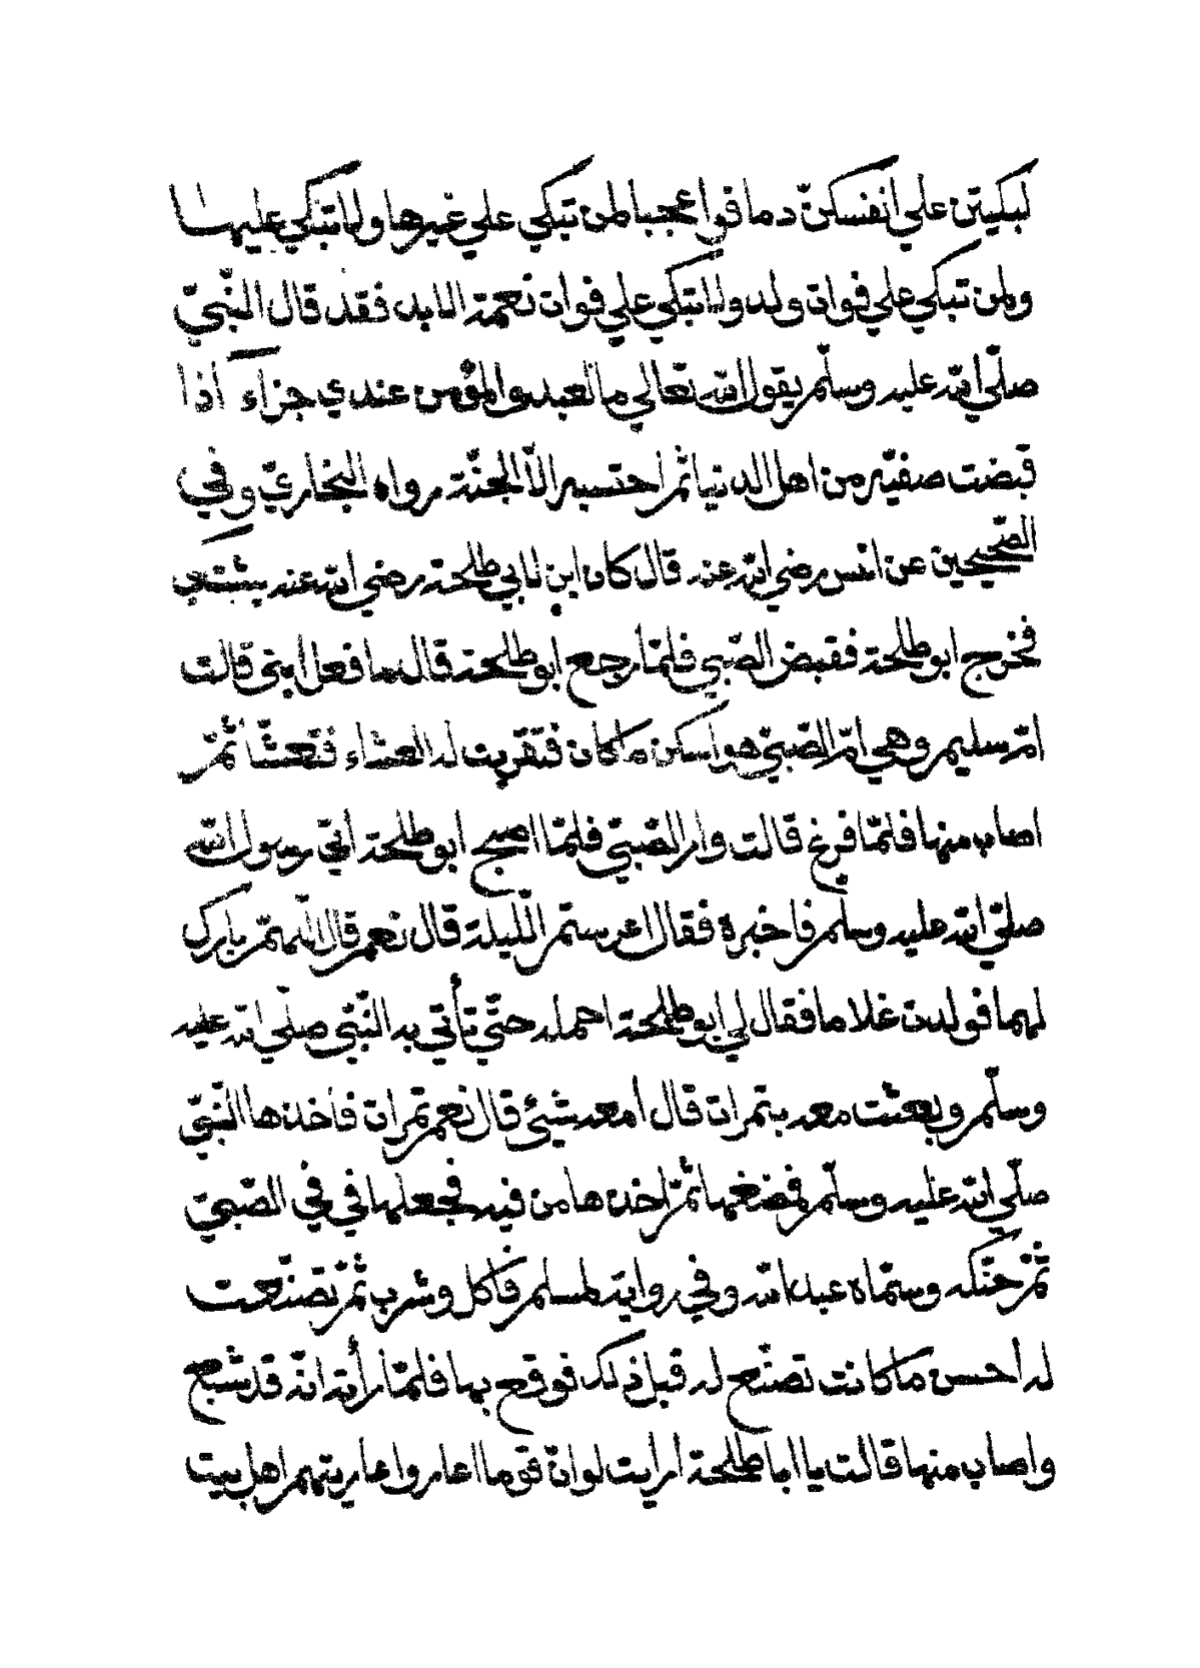 لبكيتن علي انفسكن دما فوا عجبا لمن تبكي علي غيرها ولا تبكي عليها
ولمن تبكي علي فوات ولد ولا تبكي علي فوات نعمة الابد فقد قال النّبيّ
صلّي الله عليه وسلّم يقول الله تعالي ما لعبدي المؤمن عندي جزاء اذا
قبضت صفيّه من اهل الدنيا ثمّ احتسبه الّا الجنّة رواه البخاريّ وفي
الصّحيحين عن انس رضي الله عنه قال كان ابن لابي طلحة رضي الله عنه يشتكي
فخرج ابو طلحة فقبض الصّبي فلمّا رجع ابو طلحة قال ما فعل ابني قالت
امّ سليم وهي امّ الصّبيّ هو اسكن ما كان فقربت له العشاء فتعشّا ثمّ
اصاب منها فلمّا فرغ قالت وار الصّبيّ فلمّا اصبح ابو طلحة أتي رسول الله
صلّي الله عليه وسلّم فاخبره فقال اعرستم اللّيلة قال نعم قال اللّهمّ بارك
لهما فولدت غلاما فقال لي ابو طلحة احمله حتّي تأتي به النّبيّ صلّي الله عليه
وسلّم وبعثت معه بتمرات قال أمعه شيئ قال نعم تمرات فأخذها النّبيّ
صلّي الله عليه وسلّم فمضغها ثمّ اخذها من فيه فجعلها في في الصّبيّ
ثمّ حنّكه وسمّاه عبد الله وفي رواية لمسلم فأكل وشرب ثمّ تصنّعت
له أحسن ما كانت تصنّع له قبل ذلك فوقع بها فلمّا رأته انّه قد شبع
واصاب منها قالت يا ابا طلحة ارايت لو انّ قوما اعاروا عاريتهم اهل بيت